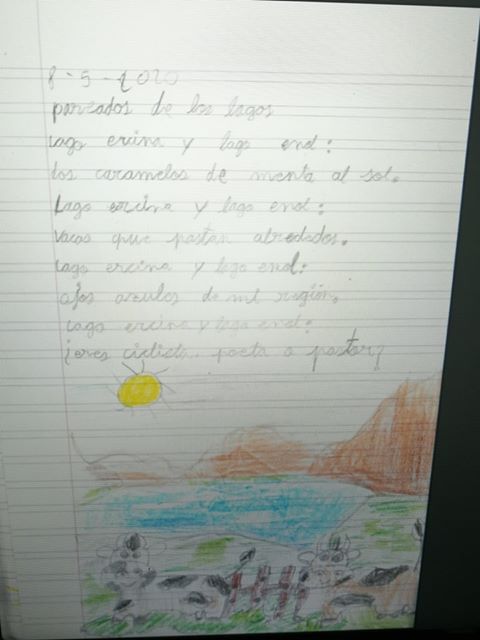 8-5-2020
pareados de los lagos
Lago ercina y lago enol:
dos caramelos de menta al sol.
Lago ercina y lago enol:
vacas que pastan alrededor.
Lago ercina y lago enol:
ojos azules de mi región.
Lago ercina y lago enol:
¿eres ciclista, poeta o pastor?